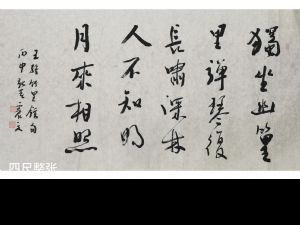 獨坐幽篁
里彈琴復
長嘯深林
人不知明
月來相照
王維竹里館句
丙申
四尺整张